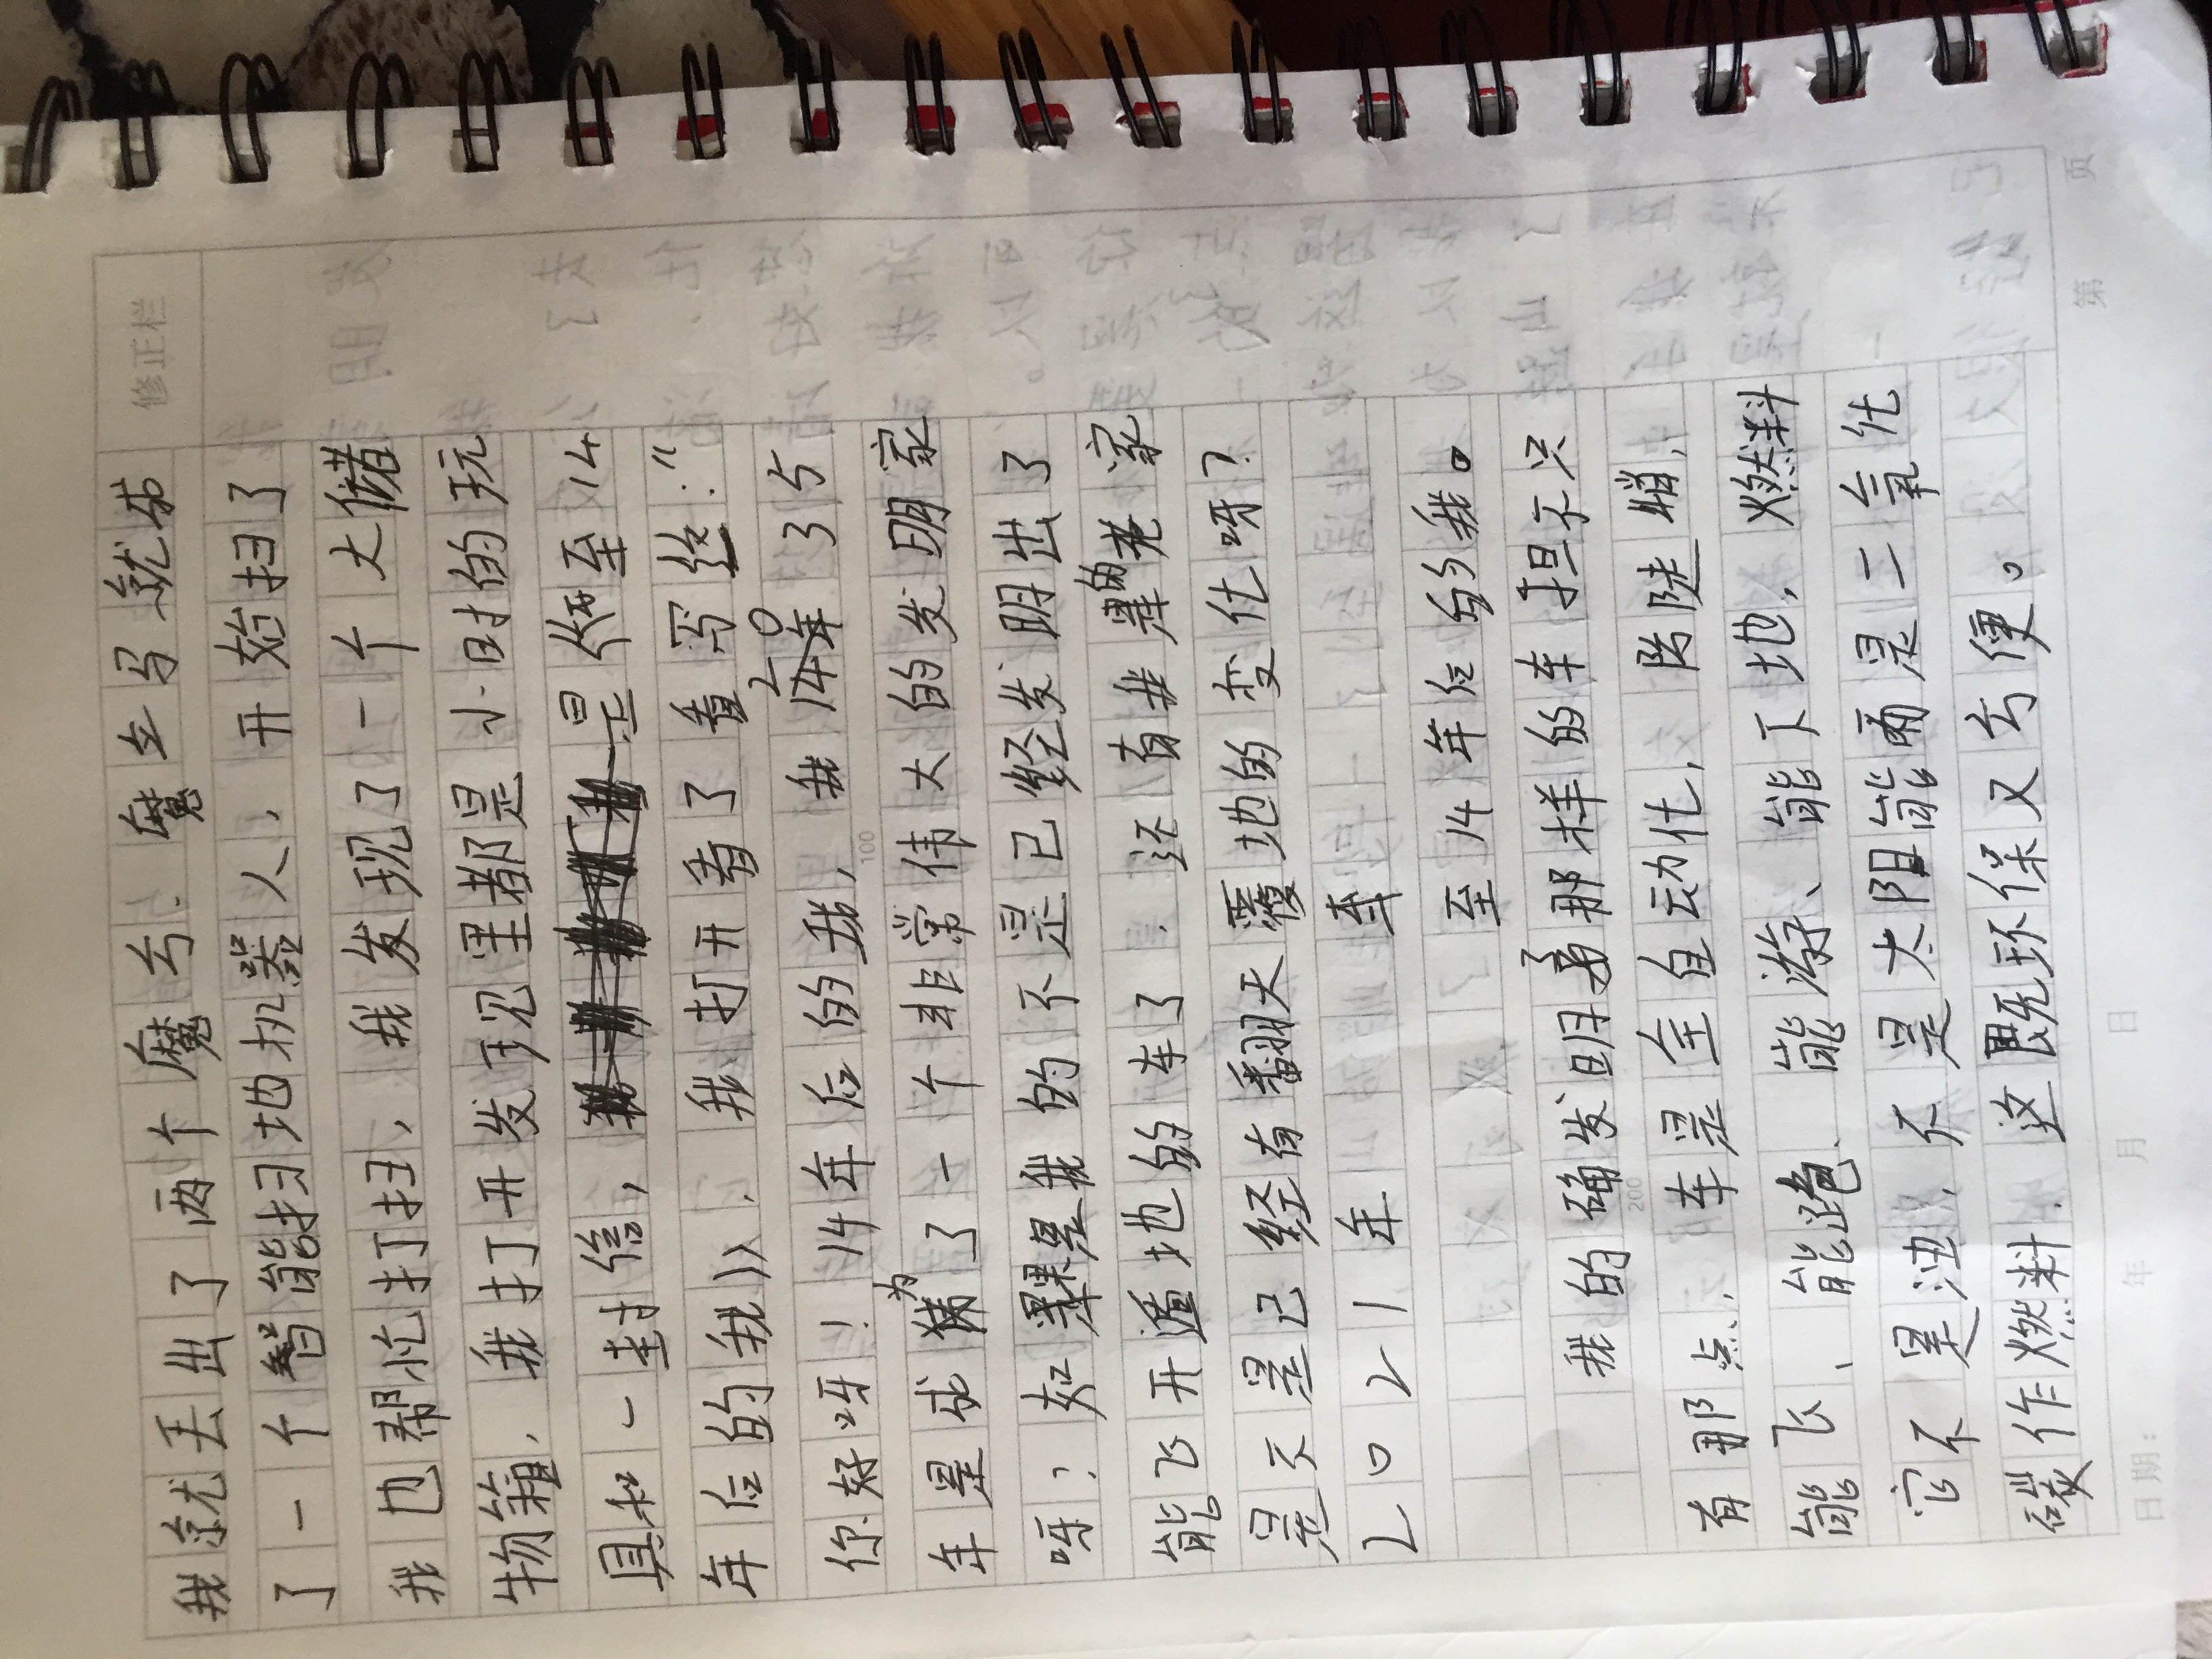 修正栏
我就丢出了两个魔方，魔方马就书
了一个智能扫地机器人，开始扫了
我也帮忙打扫，我发现了一个大储
物箱，我打开发现里都是小时的玩
具和一封信，是《至14
年后的我》，我打开看了看写给："
你好呀！14年后的我，我2035
年是成为了一个非常伟大的发明家
呀，如果是我的不是已经发明出了
能飞开遁地的车了，还有我的老家
是不是已经有翻天覆地的变化呀？
2021年 李
至14年后的我。
我的确发明了那样的车担不只
有那点，车是全自动化，防陡峭，
能飞、能跑、能游、能下地，燃料
它不是油，不是太阳能而是二氧化
碳作燃料，这既环保又方便。
100
200
日期： 年 月 日
第 页